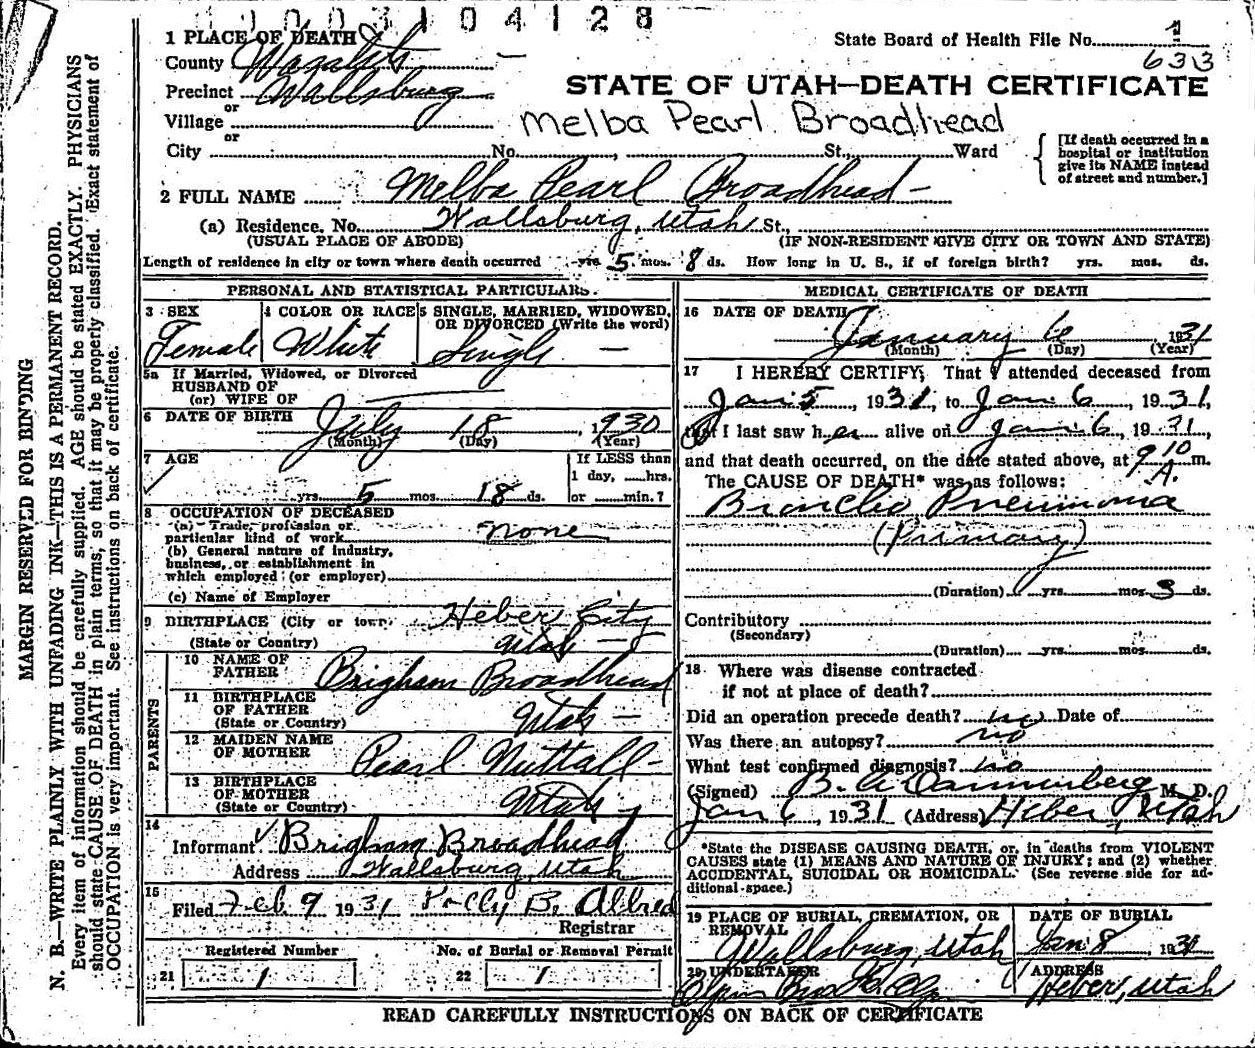 1003104128
1 PLACE OF DEATH
County Wasatch
State Board of Health File No. 1
633
Precinct Wallsburg
STATE OF UTAH—DEATH CERTIFICATE
or
Village
Melba Pearl Broadhead
or
City No. , St., Ward
[If death occurred in a hospital or institution give its NAME instead of street and number.]
2 FULL NAME Melba Pearl Broadhead
(a) Residence. No. Wallsburg, Utah St.,
(USUAL PLACE OF ABODE) (IF NON-RESIDENT GIVE CITY OR TOWN AND STATE)
Length of residence in city or town where death occurred - yrs. 5 mos. 8 ds. How long in U. S., if of foreign birth? yrs. mos. ds.
PERSONAL AND STATISTICAL PARTICULARS.
3 SEX 4 COLOR OR RACE 5 SINGLE, MARRIED, WIDOWED, OR DIVORCED (Write the word)
Female White Single —
5a If Married, Widowed, or Divorced
HUSBAND OF
(or) WIFE OF
6 DATE OF BIRTH July 18, 1930
(Month) (Day) (Year)
7 AGE If LESS than
1 day, hrs.
yrs. 5 mos. 18 ds. or min.?
8 OCCUPATION OF DECEASED
(a) Trade, profession or
particular kind of work none
(b) General nature of industry,
business, or establishment in
which employed (or employer)
(c) Name of Employer
9 BIRTHPLACE (City or town) Heber City
(State or Country) Utah —
PARENTS
10 NAME OF
FATHER Brigham Broadhead
11 BIRTHPLACE
OF FATHER
(State or Country) Utah —
12 MAIDEN NAME
OF MOTHER Pearl Nuttall -
13 BIRTHPLACE
OF MOTHER
(State or Country) Utah -
14
Informant ✓ Brigham Broadhead
Address Wallsburg, Utah
15
Filed Feb. 9 1931 B. Allred
Registrar
Registered Number No. of Burial or Removal Permit
21 1 22 1
MEDICAL CERTIFICATE OF DEATH
16 DATE OF DEATH
January 6 1931
(Month) (Day) (Year)
17 I HEREBY CERTIFY, That I attended deceased from
Jan 5, 1931, to Jan 6, 1931,
that I last saw her alive on Jan 6, 1931,
and that death occurred, on the date stated above, at 9 10 A. m.
The CAUSE OF DEATH* was as follows:
Broncho Pneumonia
(Primary)
(Duration) yrs. mos. 3 ds.
Contributory
(Secondary)
(Duration) yrs. mos. ds.
18 Where was disease contracted
if not at place of death?
Did an operation precede death? no Date of
Was there an autopsy? no
What test confirmed diagnosis? no
(Signed) B. A. Dannenberg M. D.
Jan 6, 1931 (Address) Heber, Utah
*State the DISEASE CAUSING DEATH, or, in deaths from VIOLENT
CAUSES state (1) MEANS AND NATURE OF INJURY; and (2) whether
ACCIDENTAL, SUICIDAL OR HOMICIDAL. (See reverse side for ad-
ditional space.)
19 PLACE OF BURIAL, CREMATION, OR DATE OF BURIAL
REMOVAL
Wallsburg, Utah Jan 8 1931
20 UNDERTAKER ADDRESS
Olpin Heber, Utah
READ CAREFULLY INSTRUCTIONS ON BACK OF CERTIFICATE
MARGIN RESERVED FOR BINDING
N. B.—WRITE PLAINLY WITH UNFADING INK—THIS IS A PERMANENT RECORD.
Every item of information should be carefully supplied. AGE should be stated EXACTLY. PHYSICIANS
should state CAUSE OF DEATH in plain terms, so that it may be properly classified. Exact statement of
OCCUPATION is very important. See instructions on back of certificate.